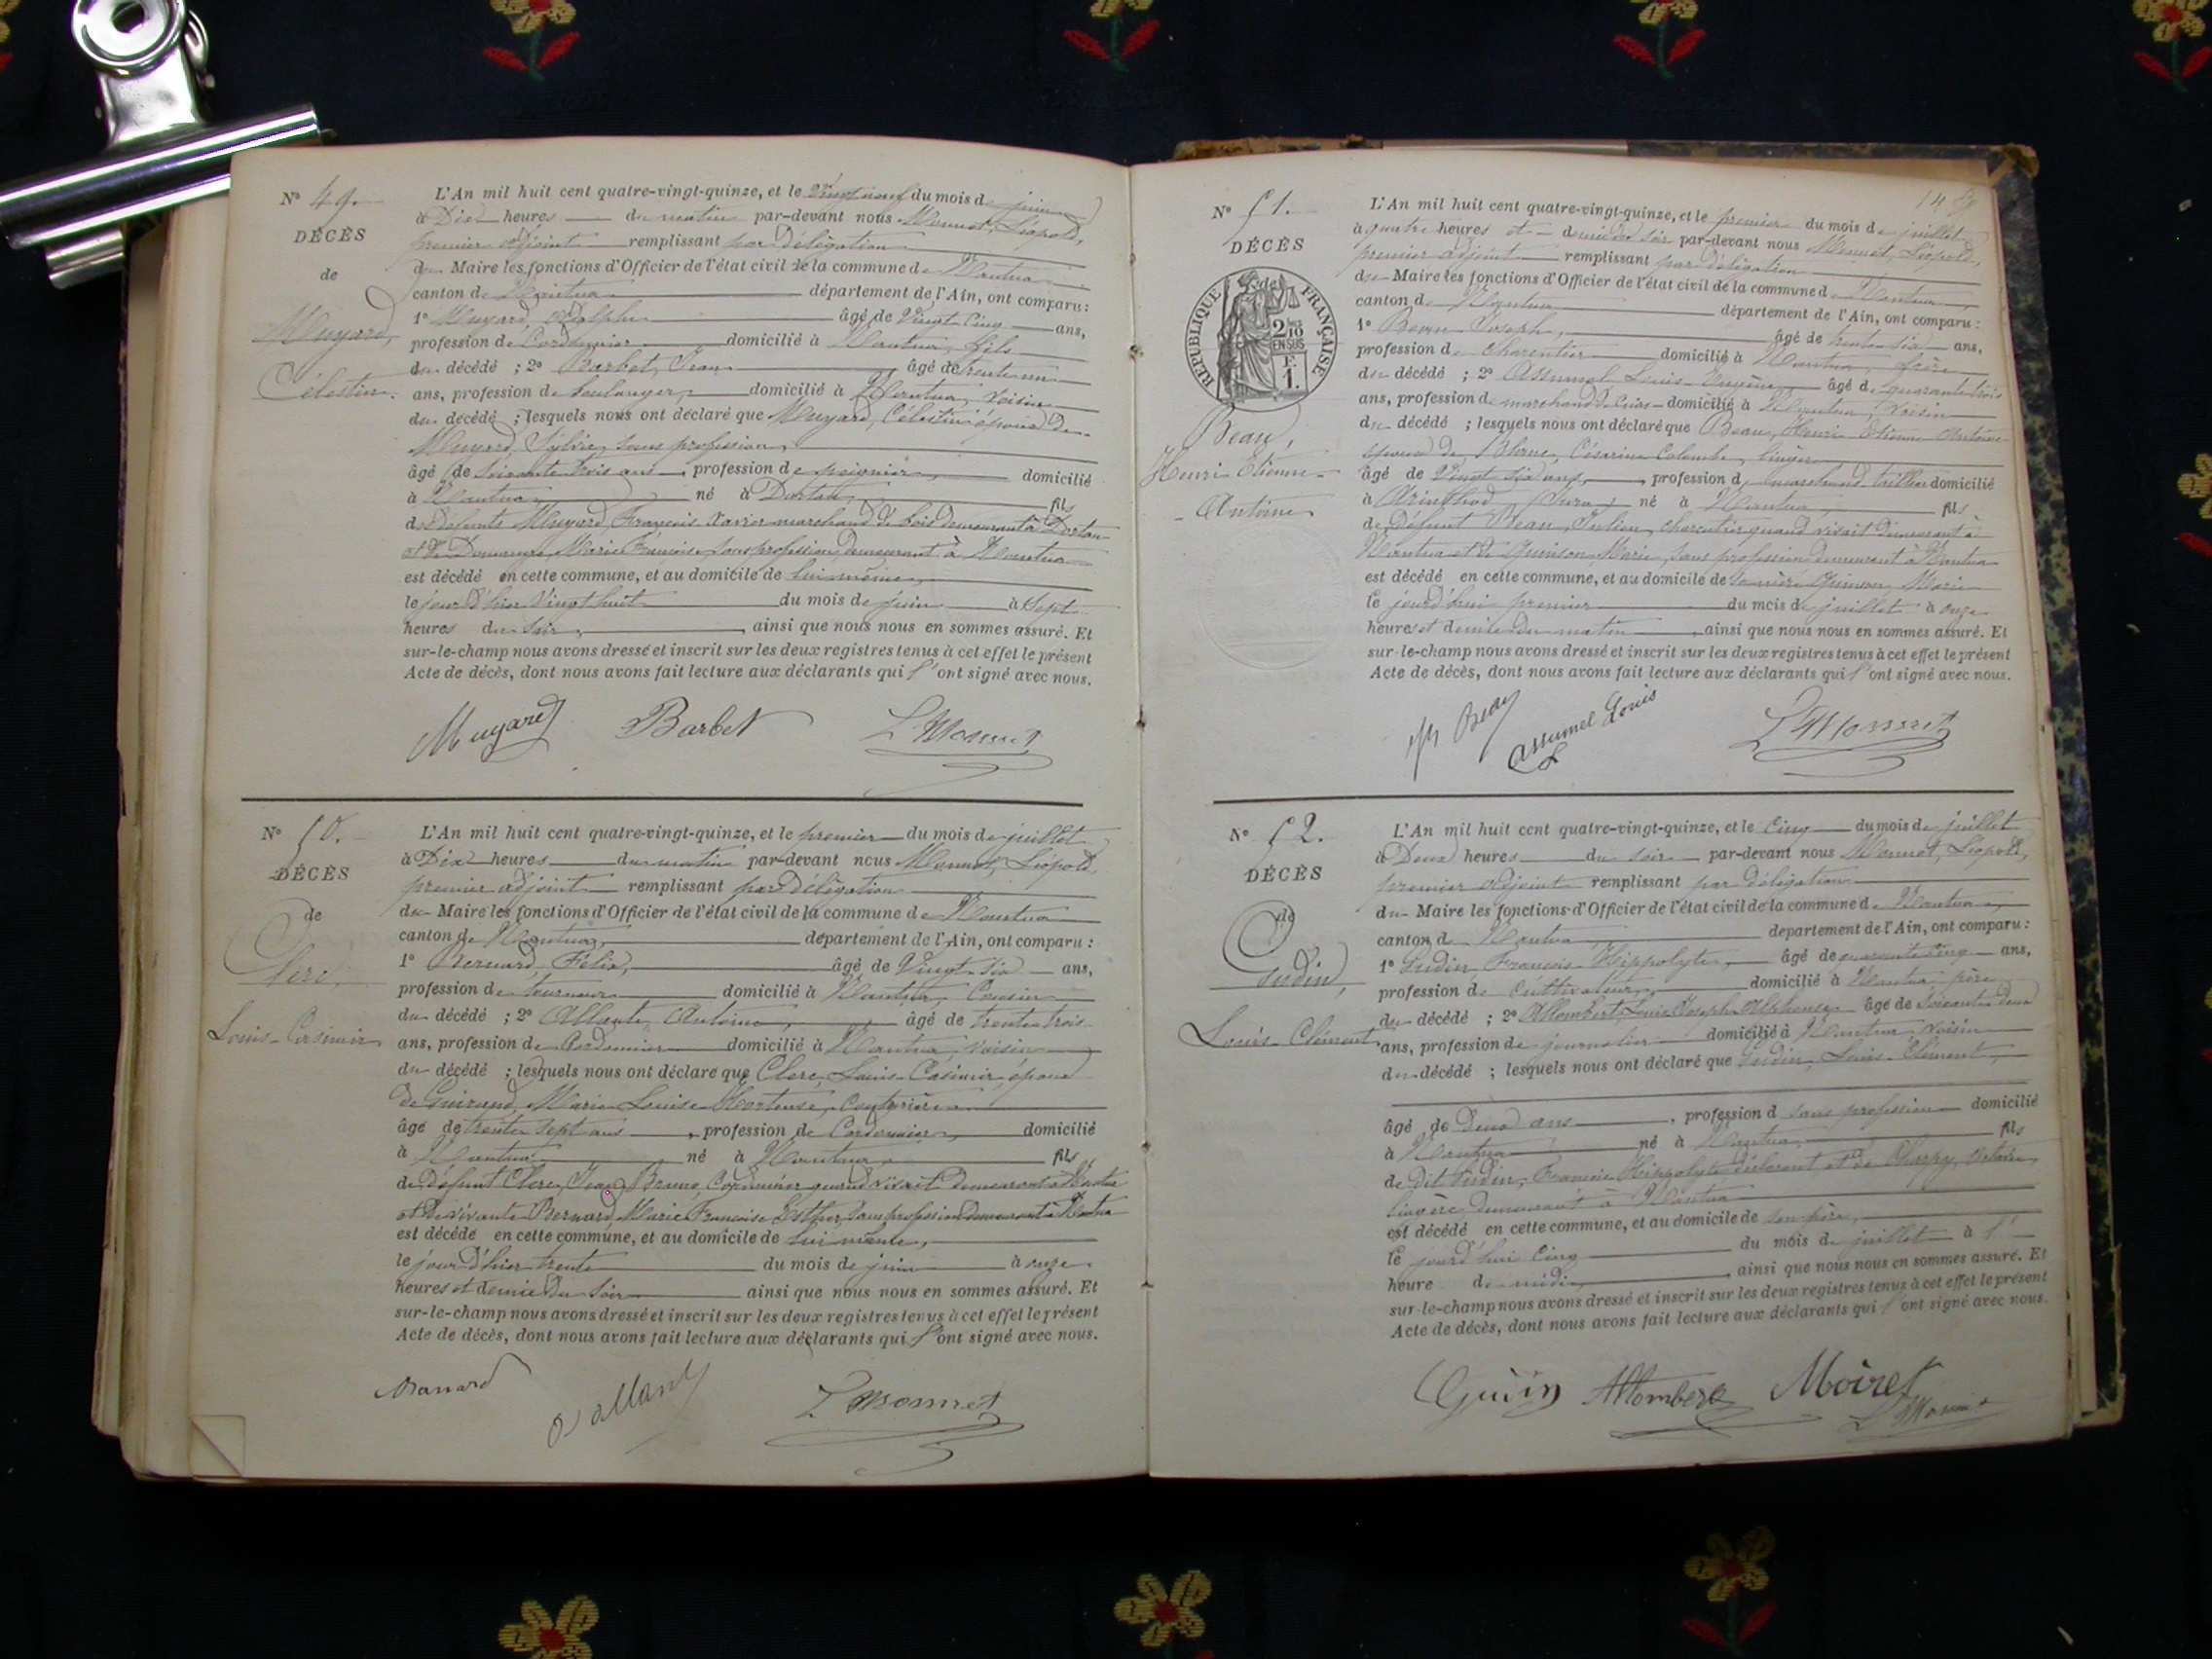 N° 49.
DÉCÈS
de
Muyard,
Célestin.
L'An mil huit cent quatre-vingt-quinze, et le Vingt neuf du mois de juin
à Dix heures du matin par-devant nous Monnet, Léopold,
premier adjoint remplissant par délégation
du Maire les fonctions d'Officier de l'état civil de la commune de Nantua
canton de Nantua département de l'Ain, ont comparu :
1° Muyard, Adolphe âgé de Vingt Cinq ans,
profession de Cordonnier domicilié à Nantua, fils
du décédé ; 2° Barbet, Jean âgé de trente un
ans, profession de boulanger, domicilié à Nantua, voisin
du décédé ; lesquels nous ont déclaré que Muyard, Célestin époux de
Muyard, Sylvie, sans profession,
âgé de soixante trois ans, profession de peignier, domicilié
à Nantua né à Dortan fils
de défunts Muyard, François Xavier marchand de bois demeurant à Dortan
et de Marie Françoise sans profession, demeurant à Nantua
est décédé en cette commune, et au domicile de lui même,
le jour d'hier Vingt huit du mois de juin à Sept
heures du soir, ainsi que nous nous en sommes assuré. Et
sur-le-champ nous avons dressé et inscrit sur les deux registres tenus à cet effet le présent
Acte de décès, dont nous avons fait lecture aux déclarants qui l'ont signé avec nous.
Muyard Barbet L Monnet
N° 50.
DÉCÈS
de
Clerc,
Louis-Casimir
L'An mil huit cent quatre-vingt-quinze, et le premier du mois de juillet
à Dix heures du matin par-devant nous Monnet, Léopold,
premier adjoint remplissant par délégation
du Maire les fonctions d'Officier de l'état civil de la commune de Nantua
canton de Nantua, département de l'Ain, ont comparu :
1° Bernard, Félix, âgé de Vingt Six ans,
profession de tourneur domicilié à Nantua, Cousin
du décédé ; 2° Antoine, âgé de trente trois
ans, profession de Cordonnier domicilié à Nantua, voisin
du décédé ; lesquels nous ont déclaré que Clerc, Louis-Casimir, époux
de Guiraud, Marie Louise Hortense, Couturière
âgé de trente sept ans, profession de Cordonnier, domicilié
à Nantua né à Nantua fils
de défunt Clerc, Jean Bruno, quand vivait demeurant à Nantua
et de vivante Bernard, Marie Françoise Esther, sans profession demeurant à Nantua
est décédé en cette commune, et au domicile de lui même,
le jour d'hier trente du mois de juin à onze
heures et demie du soir ainsi que nous nous en sommes assuré. Et
sur-le-champ nous avons dressé et inscrit sur les deux registres tenus à cet effet le présent
Acte de décès, dont nous avons fait lecture aux déclarants qui l'ont signé avec nous.
L Monnet
N° 51.
DÉCÈS
de
RÉPUBLIQUE FRANÇAISE
2/10 EN SUS
F. 1.
Beau,
Henri-Etienne-
Antoine
L'An mil huit cent quatre-vingt-quinze, et le premier du mois de juillet
à quatre heures et demie du soir par-devant nous Monnet, Léopold,
premier adjoint remplissant par délégation
du Maire les fonctions d'Officier de l'état civil de la commune de Nantua
canton de Nantua département de l'Ain, ont comparu :
1° Beau Joseph, âgé de trente six ans,
profession de Charcutier domicilié à Nantua, frère
du décédé ; 2° Assumel Louis-Eugène, âgé de quarante trois
ans, profession de marchand de cuirs domicilié à Nantua, voisin
du décédé ; lesquels nous ont déclaré que Beau, Henri Etienne Antoine
époux de Césarine Colombe, lingère
âgé de Vingt six ans, profession de domicilié
à Arinthod (Jura) né à Nantua, fils
de défunt Beau, Julien, charcutier quand vivait demeurant à
Nantua et de Guinson Marie, sans profession demeurant à Nantua
est décédé en cette commune, et au domicile de sa mère Guinson, Marie
le jourd'hui premier du mois de juillet à onze
heures et demie du matin, ainsi que nous nous en sommes assuré. Et
sur-le-champ nous avons dressé et inscrit sur les deux registres tenus à cet effet le présent
Acte de décès, dont nous avons fait lecture aux déclarants qui l'ont signé avec nous.
Beau Assumel Louis L Monnet
N° 52.
DÉCÈS
de
Gudin,
Louis-Clément
L'An mil huit cent quatre-vingt-quinze, et le Cinq du mois de juillet
à Deux heures du soir par-devant nous Monnet, Léopold,
premier adjoint remplissant par délégation
du Maire les fonctions d'Officier de l'état civil de la commune de Nantua,
canton de Nantua département de l'Ain, ont comparu :
1° Gudin, François-Hippolyte, âgé de quarante cinq ans,
profession de Cultivateur, domicilié à Nantua, père
du décédé ; 2° Allombert, Louis Joseph Alphonse âgé de soixante deux
ans, profession de journalier domicilié à Nantua voisin
du décédé ; lesquels nous ont déclaré que Gudin, Louis-Clément,
âgé de Deux ans, profession d sans profession domicilié
à Nantua né à Nantua, fils
de dit Gudin, François Hippolyte déclarant et de
lingère demeurant à Nantua
est décédé en cette commune, et au domicile de son père,
le jourd'hui Cinq du mois de juillet à
heure de midi, ainsi que nous nous en sommes assuré. Et
sur-le-champ nous avons dressé et inscrit sur les deux registres tenus à cet effet le présent
Acte de décès, dont nous avons fait lecture aux déclarants qui l'ont signé avec nous.
Allombert Moiret L Monnet